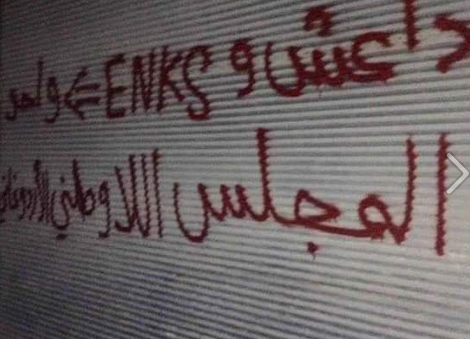 داعش و ENKS ⇐ واحد
المجلس اللاوطني الأردوغاني